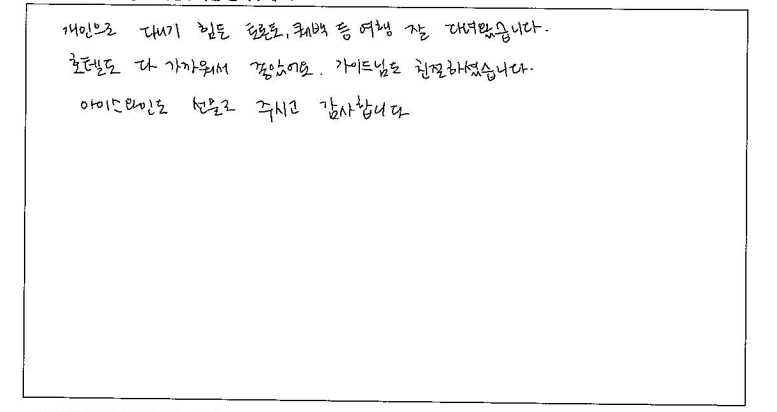 개인으로 다니기 힘든 토론토, 퀘백 등 여행 잘 다녀왔습니다.
호텔도 다 가까워서 좋았어요. 가이드님도 친절하셨습니다.
아이스와인도 선물로 주시고 감사합니다